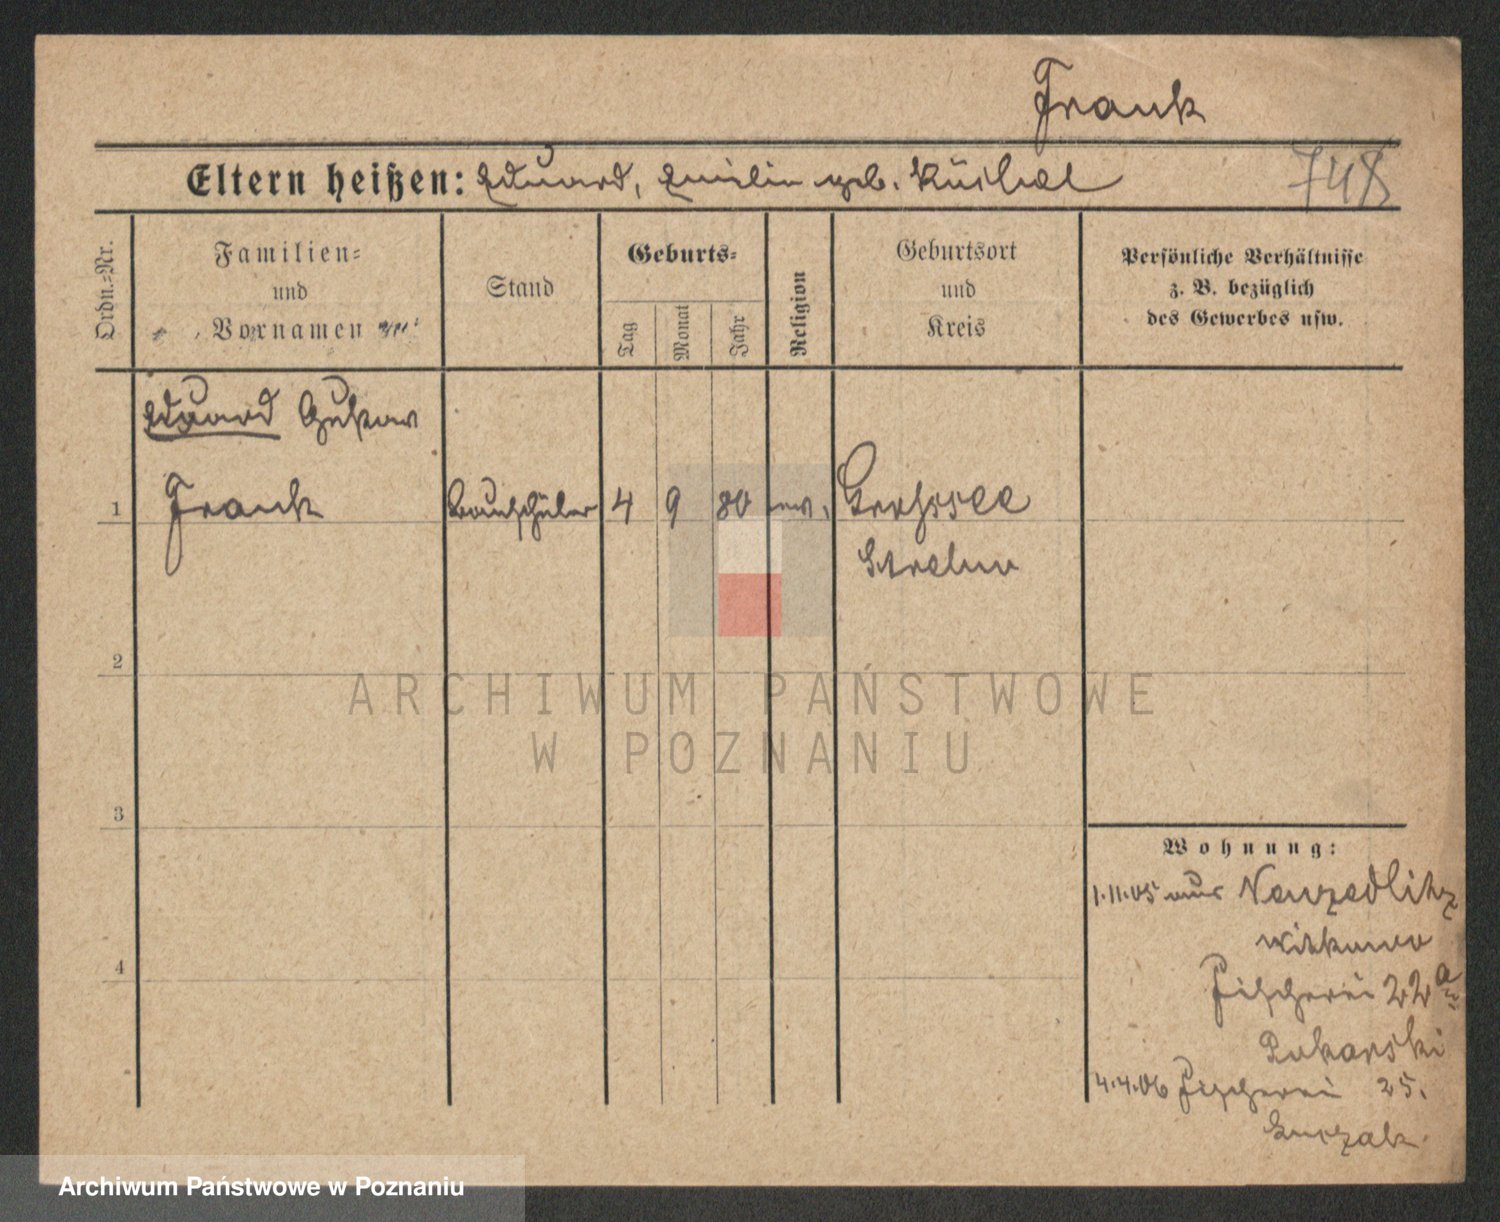 Frank
Eltern heißen: Eduard, Emilie geb. Küchel
748
Ordn.=Nr.
Familien=
und
Vornamen
Stand
Geburts=
Tag
Monat
Jahr
Religion
Geburtsort
und
Kreis
Persönliche Verhältnisse
z. B. bezüglich
des Gewerbes usw.
Eduard Gustav
1 Frank Bauschüler 4 9 80 ev. Grosssee
Strelno
2
3
4
Wohnung:
1.11.05 aus Neuzedlitz
Witkowo
Fischerei 22a
Pokorski
4.4.06 Fischerei 25.
ARCHIWUM PAŃSTWOWE
W POZNANIU
Archiwum Państwowe w Poznaniu